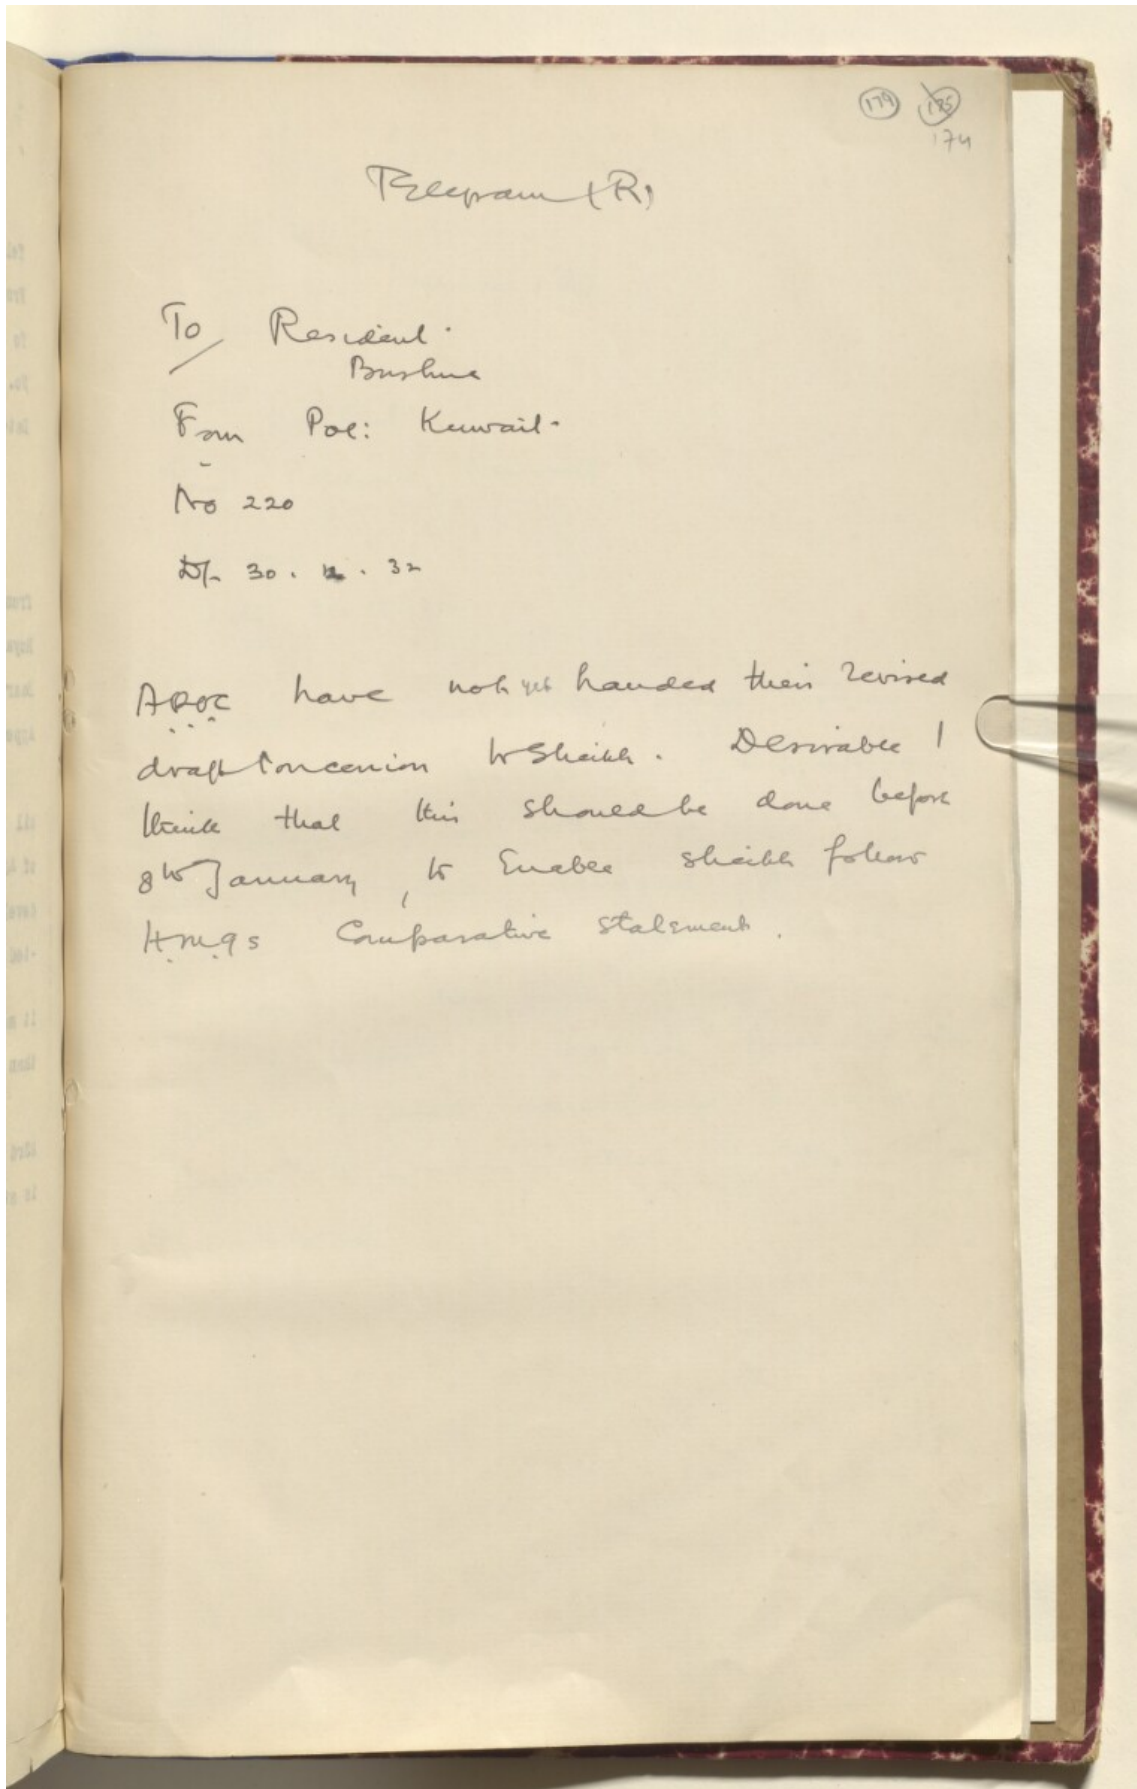 179 175
174
Telegram (R)
To Resident
Bushire
From Pol: Kuwait.
No 220
D/- 30. 12. 32
APOC have not yet handed their revised
draft Concession to Sheikh. Desirable I
think that this should be done before
8th January, to Enable Sheikh follow
H.M.G's Comparative Statement.